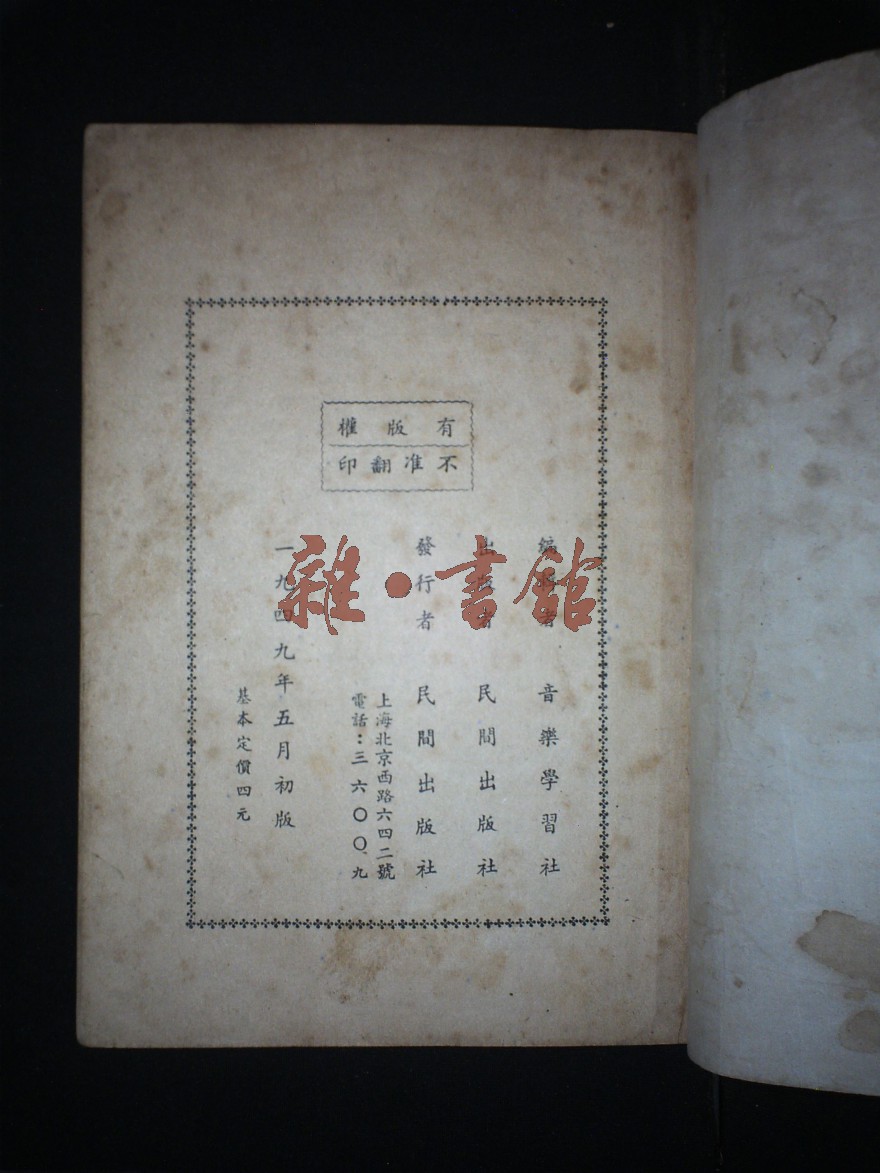 有版權
不准翻印
編者 音樂學習社
出版者 民間出版社
發行者 民間出版社
上海北京西路六四二號
電話：三六〇〇九
一九四九年五月初版
基本定價四元
雜·書館